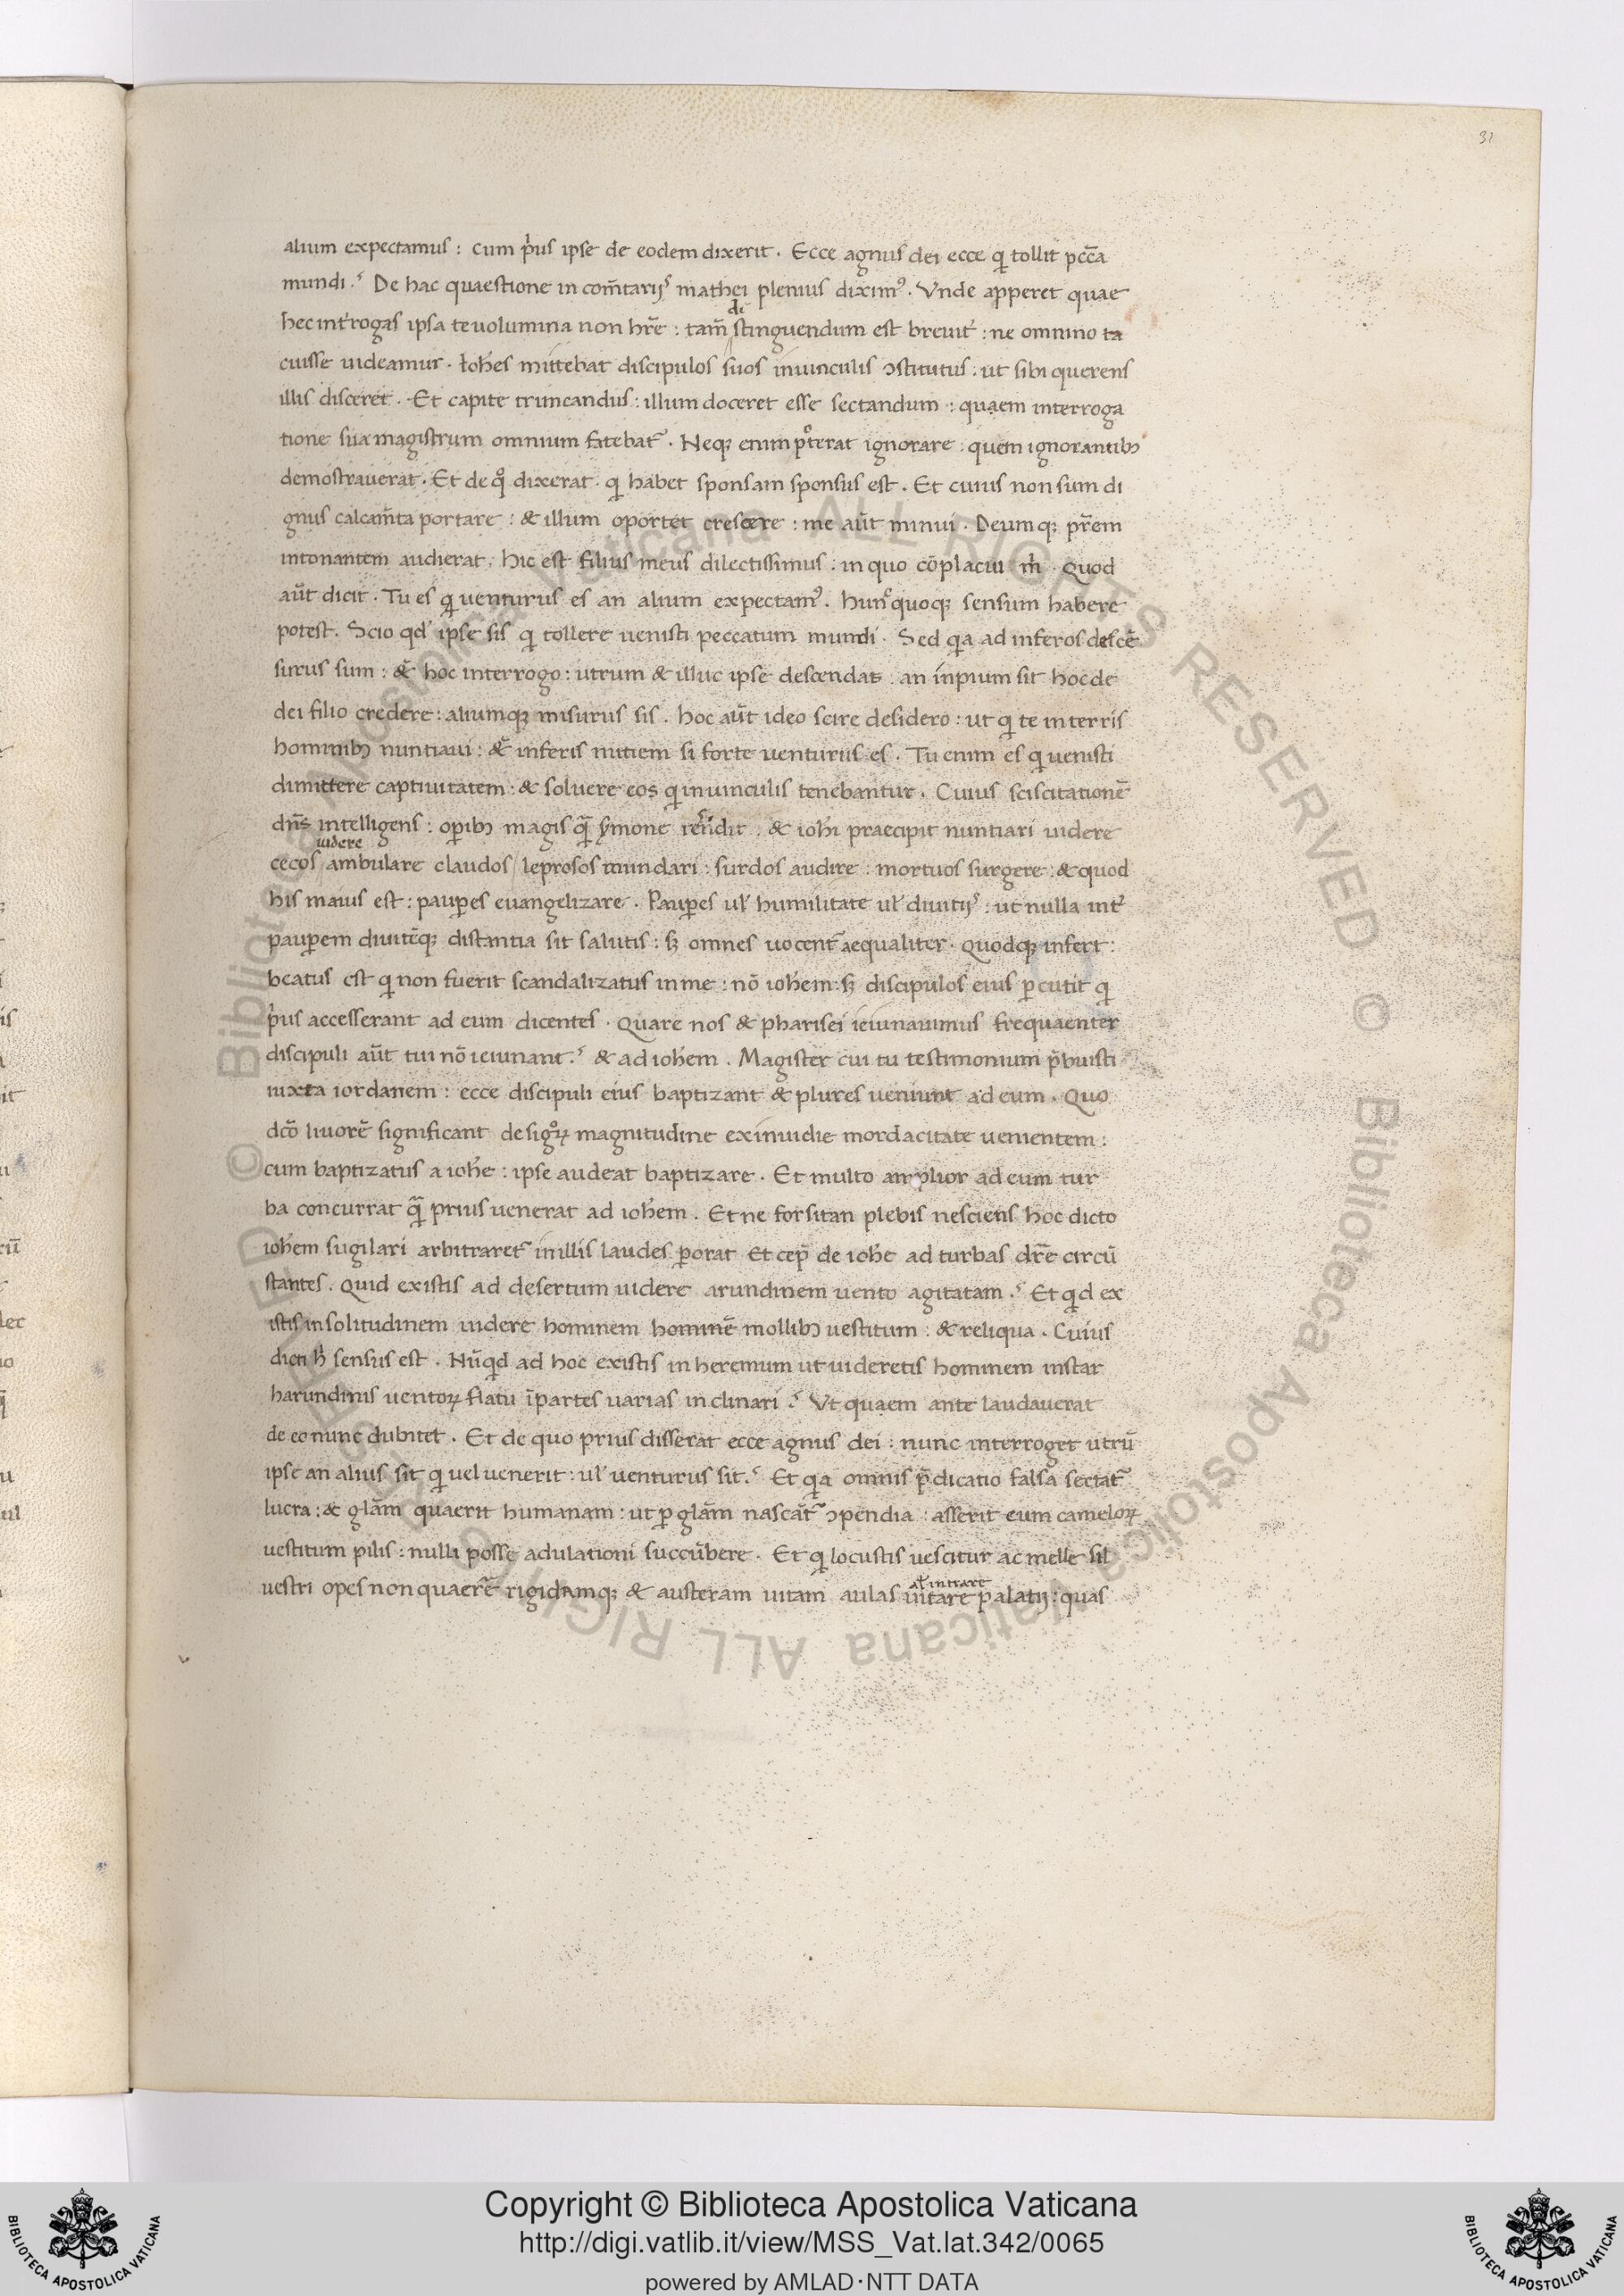 31
alium expectamus : cum p̓us ipse de eodem dixerit . Ecce agnus dei ecce qi tollit pcc̄a
mundi .ˢ De hac quaestione in com̄tarijs mathei plenius diximꝰ . Vnde apperet quae
di
hec int̓rogas ipsa te uolumina non hr̄e : tam̄ stinguendum est breuit̓ : ne omnino ta
cuisse uideamur . Ioh̄es mittebat discipulos suos in uinculis ꝯstitutus : ut sibi querens
illis disceret . Et capite truncandus : illum doceret esse sectandum : quaem interroga
tione sua magistrum omnium fatebat᷑ . Neqꝫ enim poterat ignorare : quem ignorantibꝫ
demostrauerat . Et de qo dixerat . qi habet sponsam sponsus est . Et cuius non sum di
gnus calcam̄ta portare : & illum oportet crescere : me aūt minui . Deumqꝫ pr̄em
intonantem audierat . hic est filius meus dilectissimus : in quo cōplacui m̓ . Quod
aūt dicit . Tu es qi uenturus es an alium expectamꝰ . hunc quoqꝫ sensum habere
potest . Scio qd̓ ipse sis qi tollere uenisti peccatum mundi . Sed qia ad inferos descē
surus sum : &̄ hoc interrogo : utrum & illuc ipse descendas : an inpium sit hoc de
dei filio credere : aliumqꝫ misurus sis . hoc aūt ideo scire desidero : ut qi te in terris
hominibꝫ nuntiaui : &̄ inferis nutiem si forte uenturus es . Tu enim es qi uenisti
dimittere captiuitatem : & soluere eos qi in uinculis tenebantur . Cuius sciscitationē
dn̄s intelligens : oꝑibꝫ magis qᷓ ẜmone rēndit . & ioh̄i praecipit nuntiari uidere
uidere
cecos / ambulare claudos / leprosos mundari : surdos audire : mortuos surgere : & quod
his maius est : pauꝑes euangelizare . Pauꝑes ul̓ humilitate ul̓ diuitijs : ut nulla int̓
pauꝑem diuitēqꝫ distantia sit salutis : sꝫ omnes uocent᷑ aequaliter . Quodqꝫ infert :
beatus est qi non fuerit scandalizatus in me : nō ioh̄em : sꝫ discipulos eius ꝑcutit qi
p̓us accesserant ad eum dicentes . Quare nos & pharisei ieiunauimus frequaenter
discipuli aūt tui nō ieiunant .ˢ & ad ioh̄em . Magister cui tu testimonium p̄buisti
iuxta iordanem : ecce discipuli eius baptizant & plures ueniunt ad eum . Quo
dcō liuorē significant de sigoꝝ magnitudine ex inuidie mordacitate uenientem :
cum baptizatus a ioh̄e : ipse audeat baptizare . Et multo amplior ad eum tur
ba concurrat qᷓ prius uenerat ad ioh̄em . Et ne forsitan plebis nesciens hoc dicto
ioh̄em sugilari arbitraret᷑ in illis laudes ꝑorat Et cep̄ de ioh̄e ad turbas dr̄e circū
stantes . Quid existis ad desertum uidere arundinem uento agitatam .ˢ Et qid ex
istis in solitudinem uidere hominem hominē mollibꝫ uestitum : & reliqua . Cuius
dicti h̓ sensus est . Nūqid ad hoc existis in heremum ut uideretis hominem instar
harundinis uentoꝝ flatu ī partes uarias inclinari .ˢ Ut quaem ante laudauerat
de eo nunc dubitet . Et de quo prius disserat ecce agnus dei : nunc interroget utrū
ipse an alius sit qi uel uenerit : ul̓ uenturus sit .ˢ Et qia omnis p̄dicatio falsa sectat᷑
lucra : & glām quaerit humanam : ut ꝑ glām nascāt᷑ ꝯpendia : asserit eum cameloꝝ
uestitum pilis : nulli posse adulationi succūbere . Et qi locustis uescitur ac melle sil
al̓ intrare
uestri opes non quaerē rigidamqꝫ & austeram uitam aulas uitare palatij : quas
Copyright © Biblioteca Apostolica Vaticana
http://digi.vatlib.it/view/MSS_Vat.lat.342/0065
powered by AMLAD·NTT DATA
BIBLIOTECA APOSTOLICA VATICANA
BIBLIOTECA APOSTOLICA VATICANA